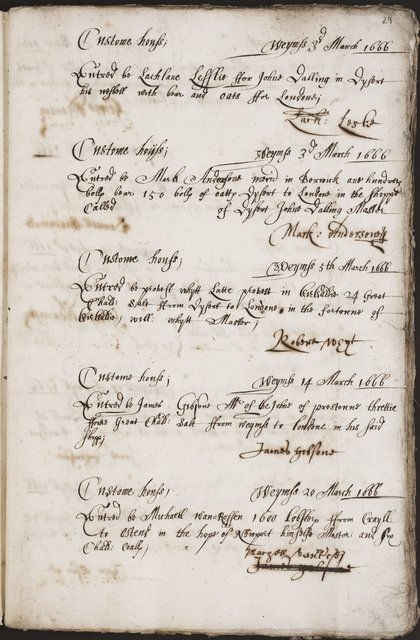 29
Custome houss; Weymss 3d March 1666
Entred be Lachlane Lesslie ffor Johne Dalling in Dysert
his weshell with bear and oats ffor Londone;
Lach: Leslie
Custome houss; Weymss 3d March 1666
Entred be Mark Andersone in Berwick ane hundreth
bolls bear 150 bolls of oatts Dysert to Londone in the shippe
Called of Dysert Johne Dalling Master
Mark: Andersone
Custome houss; Weymss 5th March 1666
Entred be whytt Latte in 24 Great
Chald: salt ffrom Dysert to Londone in the fortonne of
will: whytt Master;
Robert Whyt
Custome houss; Weymss 14 March 1666
Entred be James Gibsone Mr of the Johne of prestonne threttie
ffowr Great Chald: salt ffrom weymss to londone in his said
shipp;
James Gibsone
Custome houss; Weymss 20 March 1666
Entred be Michaell van 1600 Lobsters ffrom Crayll
to ostend in the hope of Newport himselfe Master and six
Chald: Coalls;